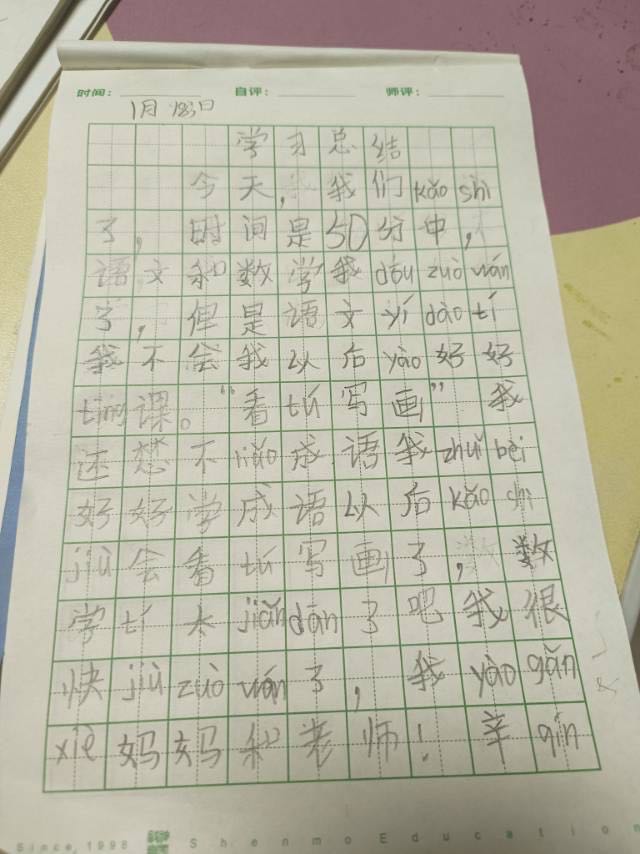 时间: 自评: 师评:
1月18日
学习总结
今天,我们kǎo shì
了,时间是50分中,
语文和数学我dōu zuò wán
了,但是语文yí dào tí
我不会我以后yào好好
tīng课。“看tú写画”我
还想不liǎo成语我zhuǐ bèi
好好学成语以后kǎo shì
jiù会看tú写画了,数
学tí太jiǎn dān了吧我很
快jiù zuò wán了,我yào gǎn
xiè妈妈和老师!辛qín
Since,1998 Shenmo Education